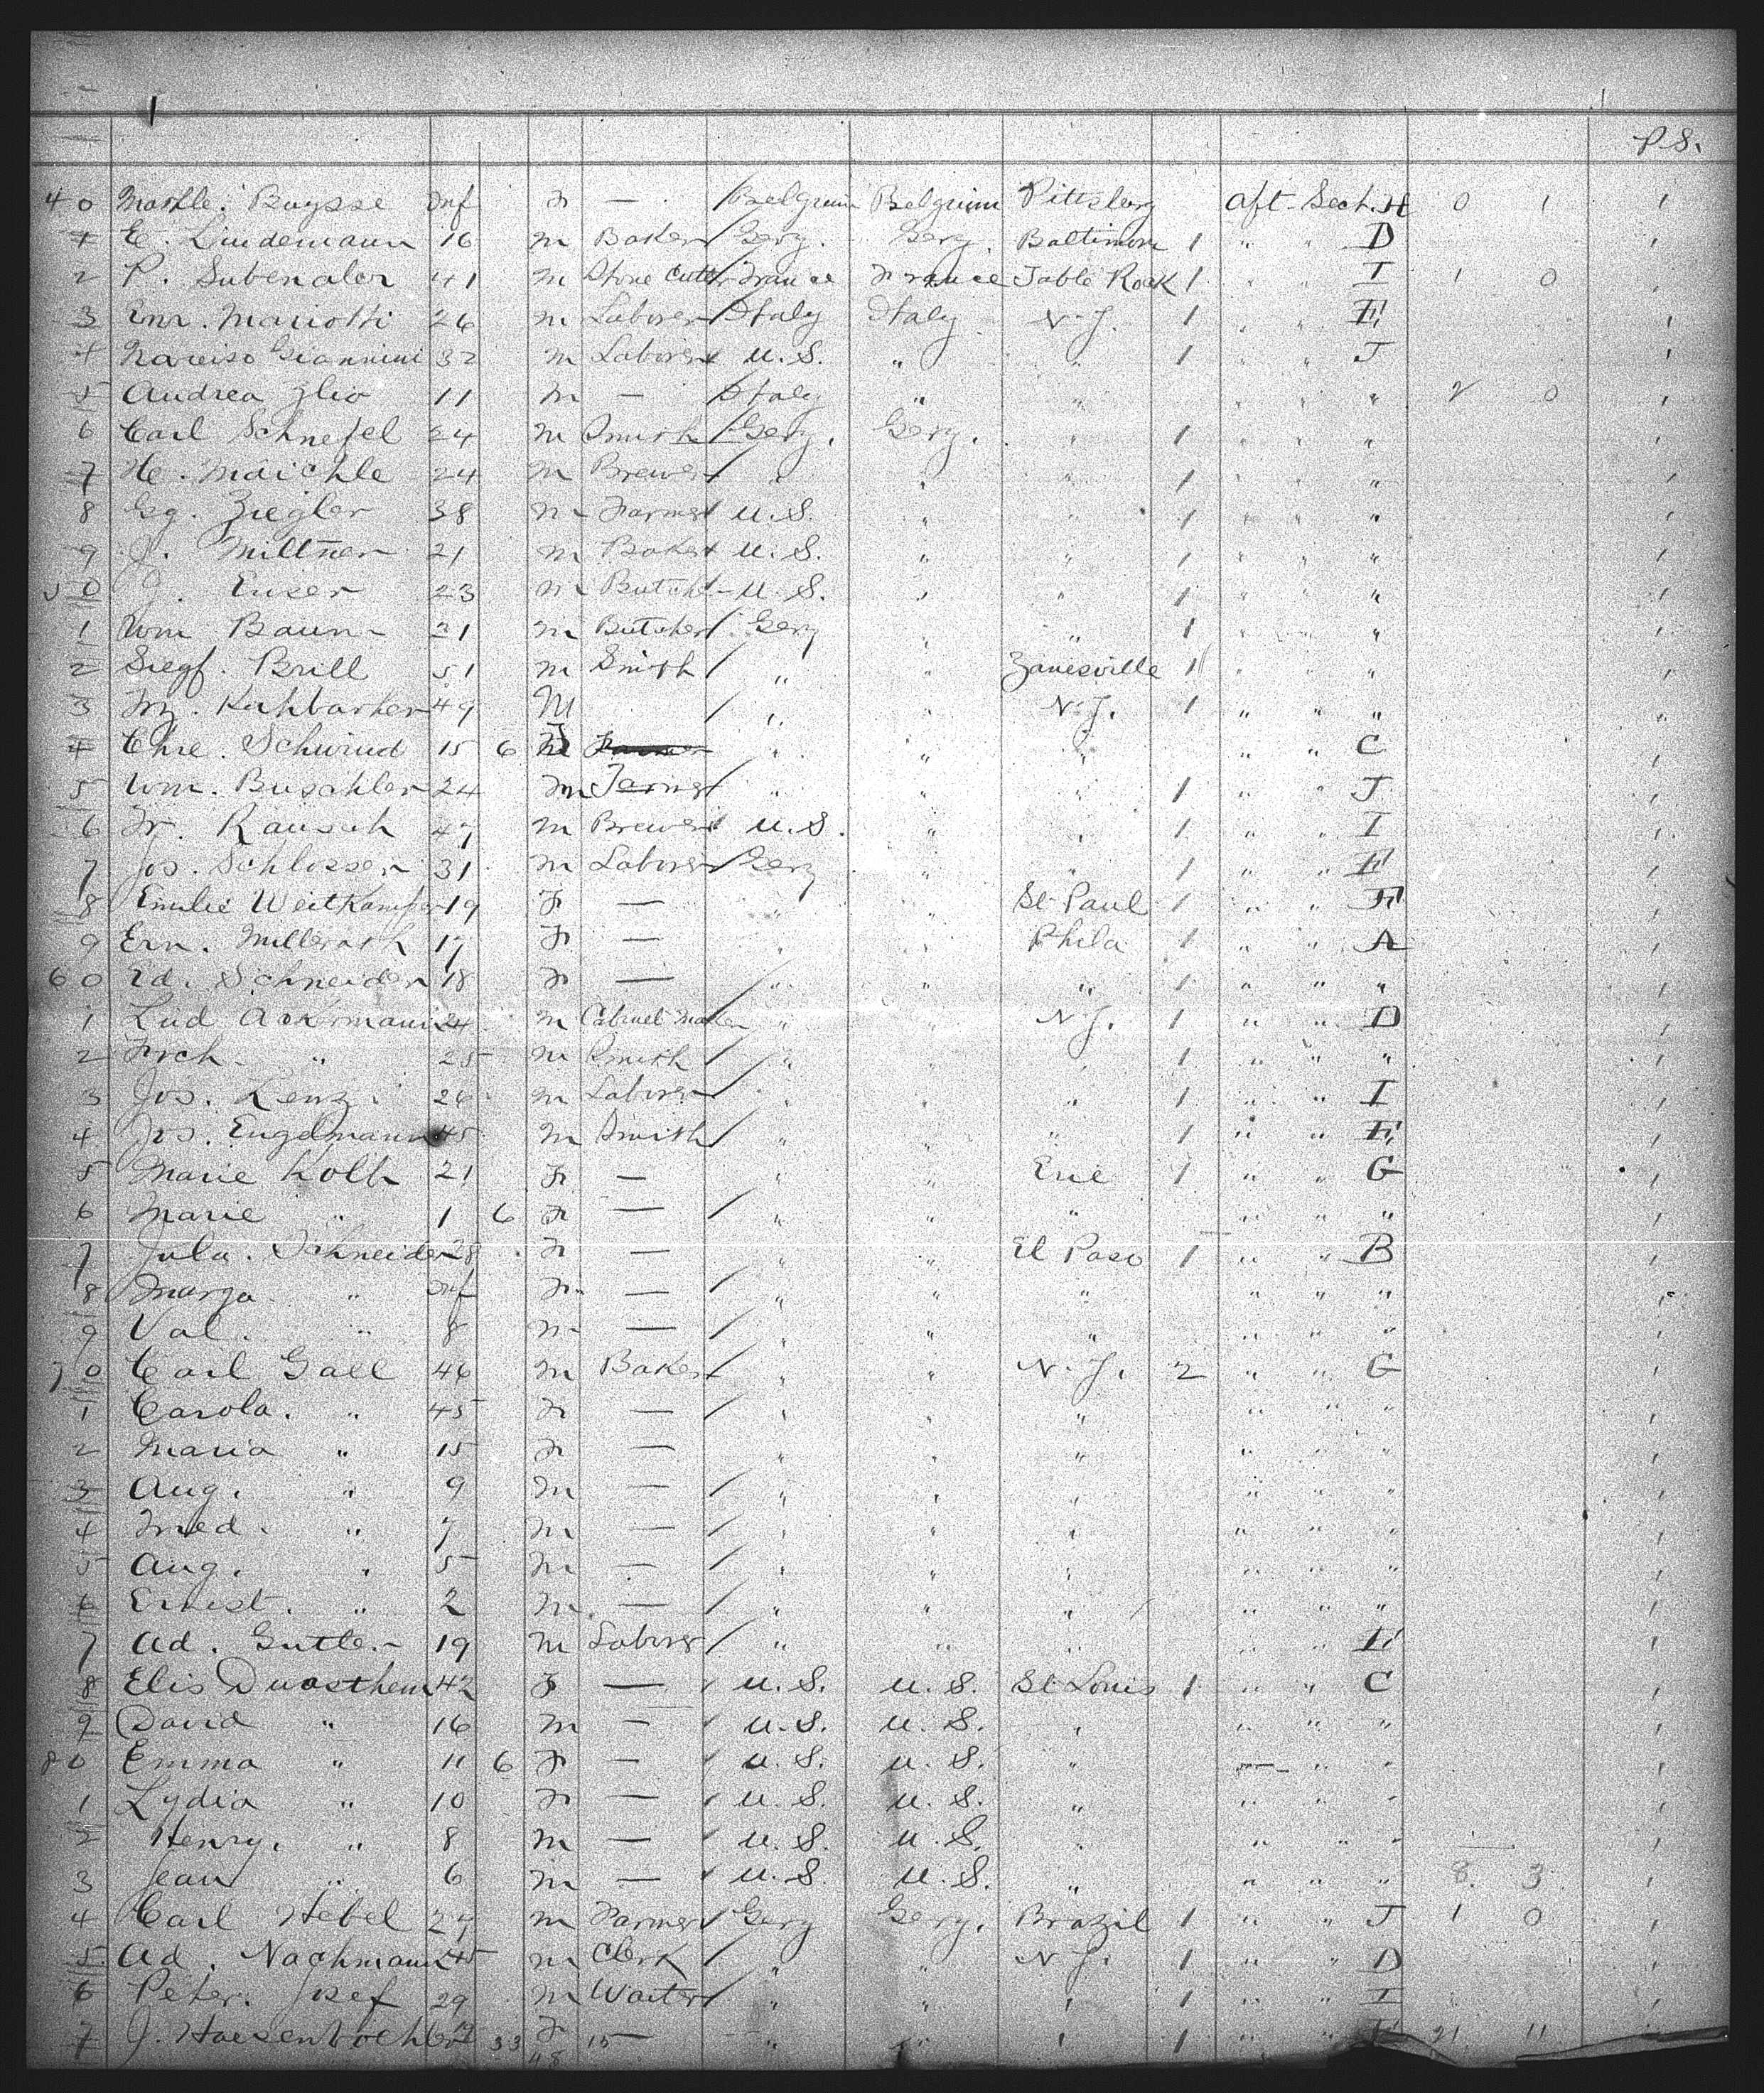 P.S.
40 Mathle. Buysse Inf F — Belgium Belgium Pittsburg Aft. Sect. H 0 1 1
1 E. Lindemann 16 M Baker / Gery. Gery. Baltimore 1 " " D 1
2 P. Subenaler 41 M Stone Cutter France France Table Rock 1 " " I 1 0 1
3 Enr. Mariotti 26 M Laborer / Italy Italy N.Y. 1 " " E 1
4 Narciso Giannini 32 M Laborer U.S. " " 1 " " J 1
5 Andrea 11 M — / Italy " " " " " 2 0 1
6 Carl Schnefel 24 M Smith / Gery. Gery. " 1 " " " 1
7 He. Maichle 24 M Brewer / " " " 1 " " " 1
8 Gg. Ziegler 38 M Farmer U.S. " " 1 " " " 1
9 J. Miltner 21 M Baker U.S. " " 1 " " " 1
50 J. Enser 23 M Butcher U.S. " " 1 " " " 1
1 Wm Baun 21 M Butcher / Gery " " 1 " " " 1
2 Siegf. Brill 51 M Smith / " " Zanesville 1 " " " 1
3 Frz. 49 M / " " N.Y. 1 " " " "
4 Chre. Schwind 15 6 F " " " " " C 1
5 Wm. Buschler 24 M Farmer / " " " 1 " " J 1
6 Fr. Rausch 47 M Brewer U.S. " " 1 " " I 1
7 Jos. Schlosser 31 M Laborer / Gery " " 1 " " E 1
8 Emilie Weitkamper 19 F — " " St. Paul 1 " " F 1
9 Ern. Millerath 17 F — " " Phila 1 " " A 1
60 Ed. Schneider 18 F — / " " " 1 " " " 1
1 Lud Ackermann 24 M Cabinet Maker " " N.Y. 1 " " D 1
2 Frch. " 25 M Smith / " " " 1 " " " 1
3 Jos. Lenz 26 M Laborer / " " " 1 " " I 1
4 Jos. Engelmann 45 M Smith / " " " 1 " " E 1
5 Marie Kolb 21 F — " " Erie 1 " " G 1
6 Marie " 1 6 F — / " " " " " " 1
7 Jula. Schneider 28 F — " " El Paso 1 " " B 1
8 Marga. " Inf F — / " " " " " " 1
9 Val. " 8 M — / " " " " " " 1
70 Carl Gaee 46 M Baker " " N.Y. 2 " " G 1
1 Carola. " 45 F — / " " " " " " 1
2 Maria " 15 F — " " " " " " 1
3 Aug. " 9 M — / " " " " " " 1
4 Fried. " 7 M — / " " " " " " 1
5 Aug. " 5 M — / " " " " " " 1
6 Ernest. " 2 M — / " " " " " " 1
7 Ad. Gutler 19 M Laborer / " " " " " E 1
8 Elis 42 F — U.S. U.S. St. Louis 1 " " C 1
9 David " 16 M — U.S. U.S. " " " " 1
80 Emma " 11 6 F — U.S. U.S. " " " " 1
1 Lydia " 10 F — U.S. U.S. " " " " 1
2 Henry. " 8 M — U.S. U.S. " " " " 1
3 Jean " 6 M — U.S. U.S. " " " " 8. 3 1
4 Carl Hebel 27 M Farmer / Gery Gery. Brazil 1 " " J 1 0 1
5 Ad. Nachmann 45 M Clerk / " " N.Y. 1 " " D 1
6 Peter. Josef 29 M Waiter / " " " 1 " " I 1
7 J. 33 F — " " " 1 " " 21 11
48 15